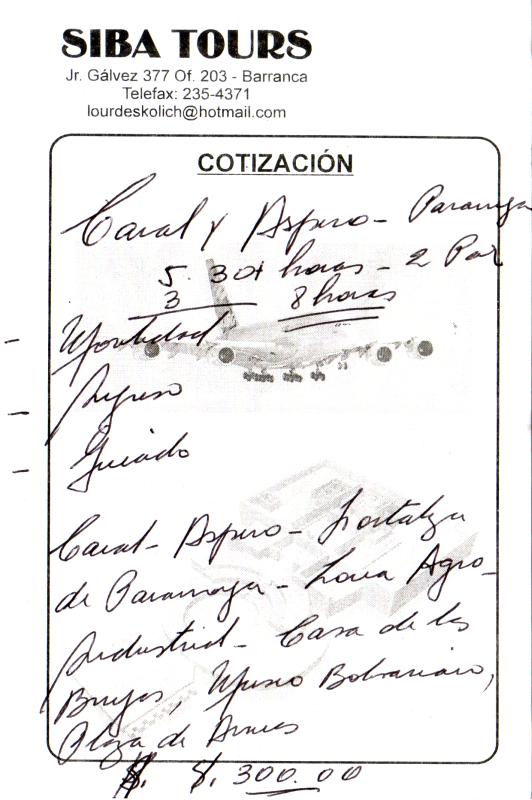 SIBA TOURS
Jr. Gálvez 377 Of. 203 - Barranca
Telefax: 235-4371
lourdeskolich@hotmail.com
COTIZACIÓN
Caral y Aspero - Paramonga
5. 30+ horas - 2 Pax
3 8 horas
Movilidad
Ingreso
Guiado
Caral - Aspero - Fortaleza
de Paramonga - Zona Agro-
Industrial - Casa de las
Brujas, Museo Bolivariano,
Plaza de Armas
S/. 300.00